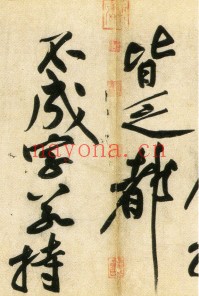 皆乏都
不成字若持
nayona.cn